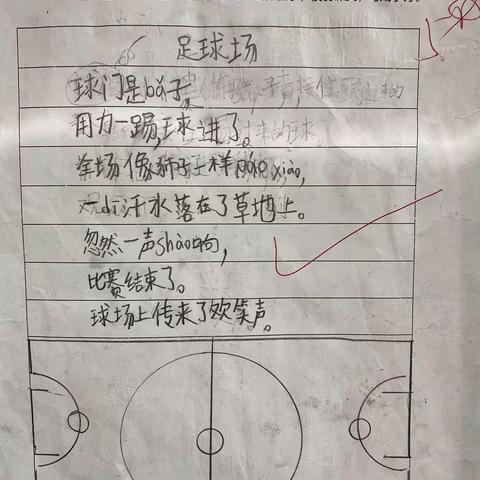 足球场
球门是bǎ子,
用力一踢,球进了。
全场像狮子一样páo xiào,
一di汗水落在了草地上。
忽然一声shào响,
比赛结束了。
球场上传来了欢笑声。